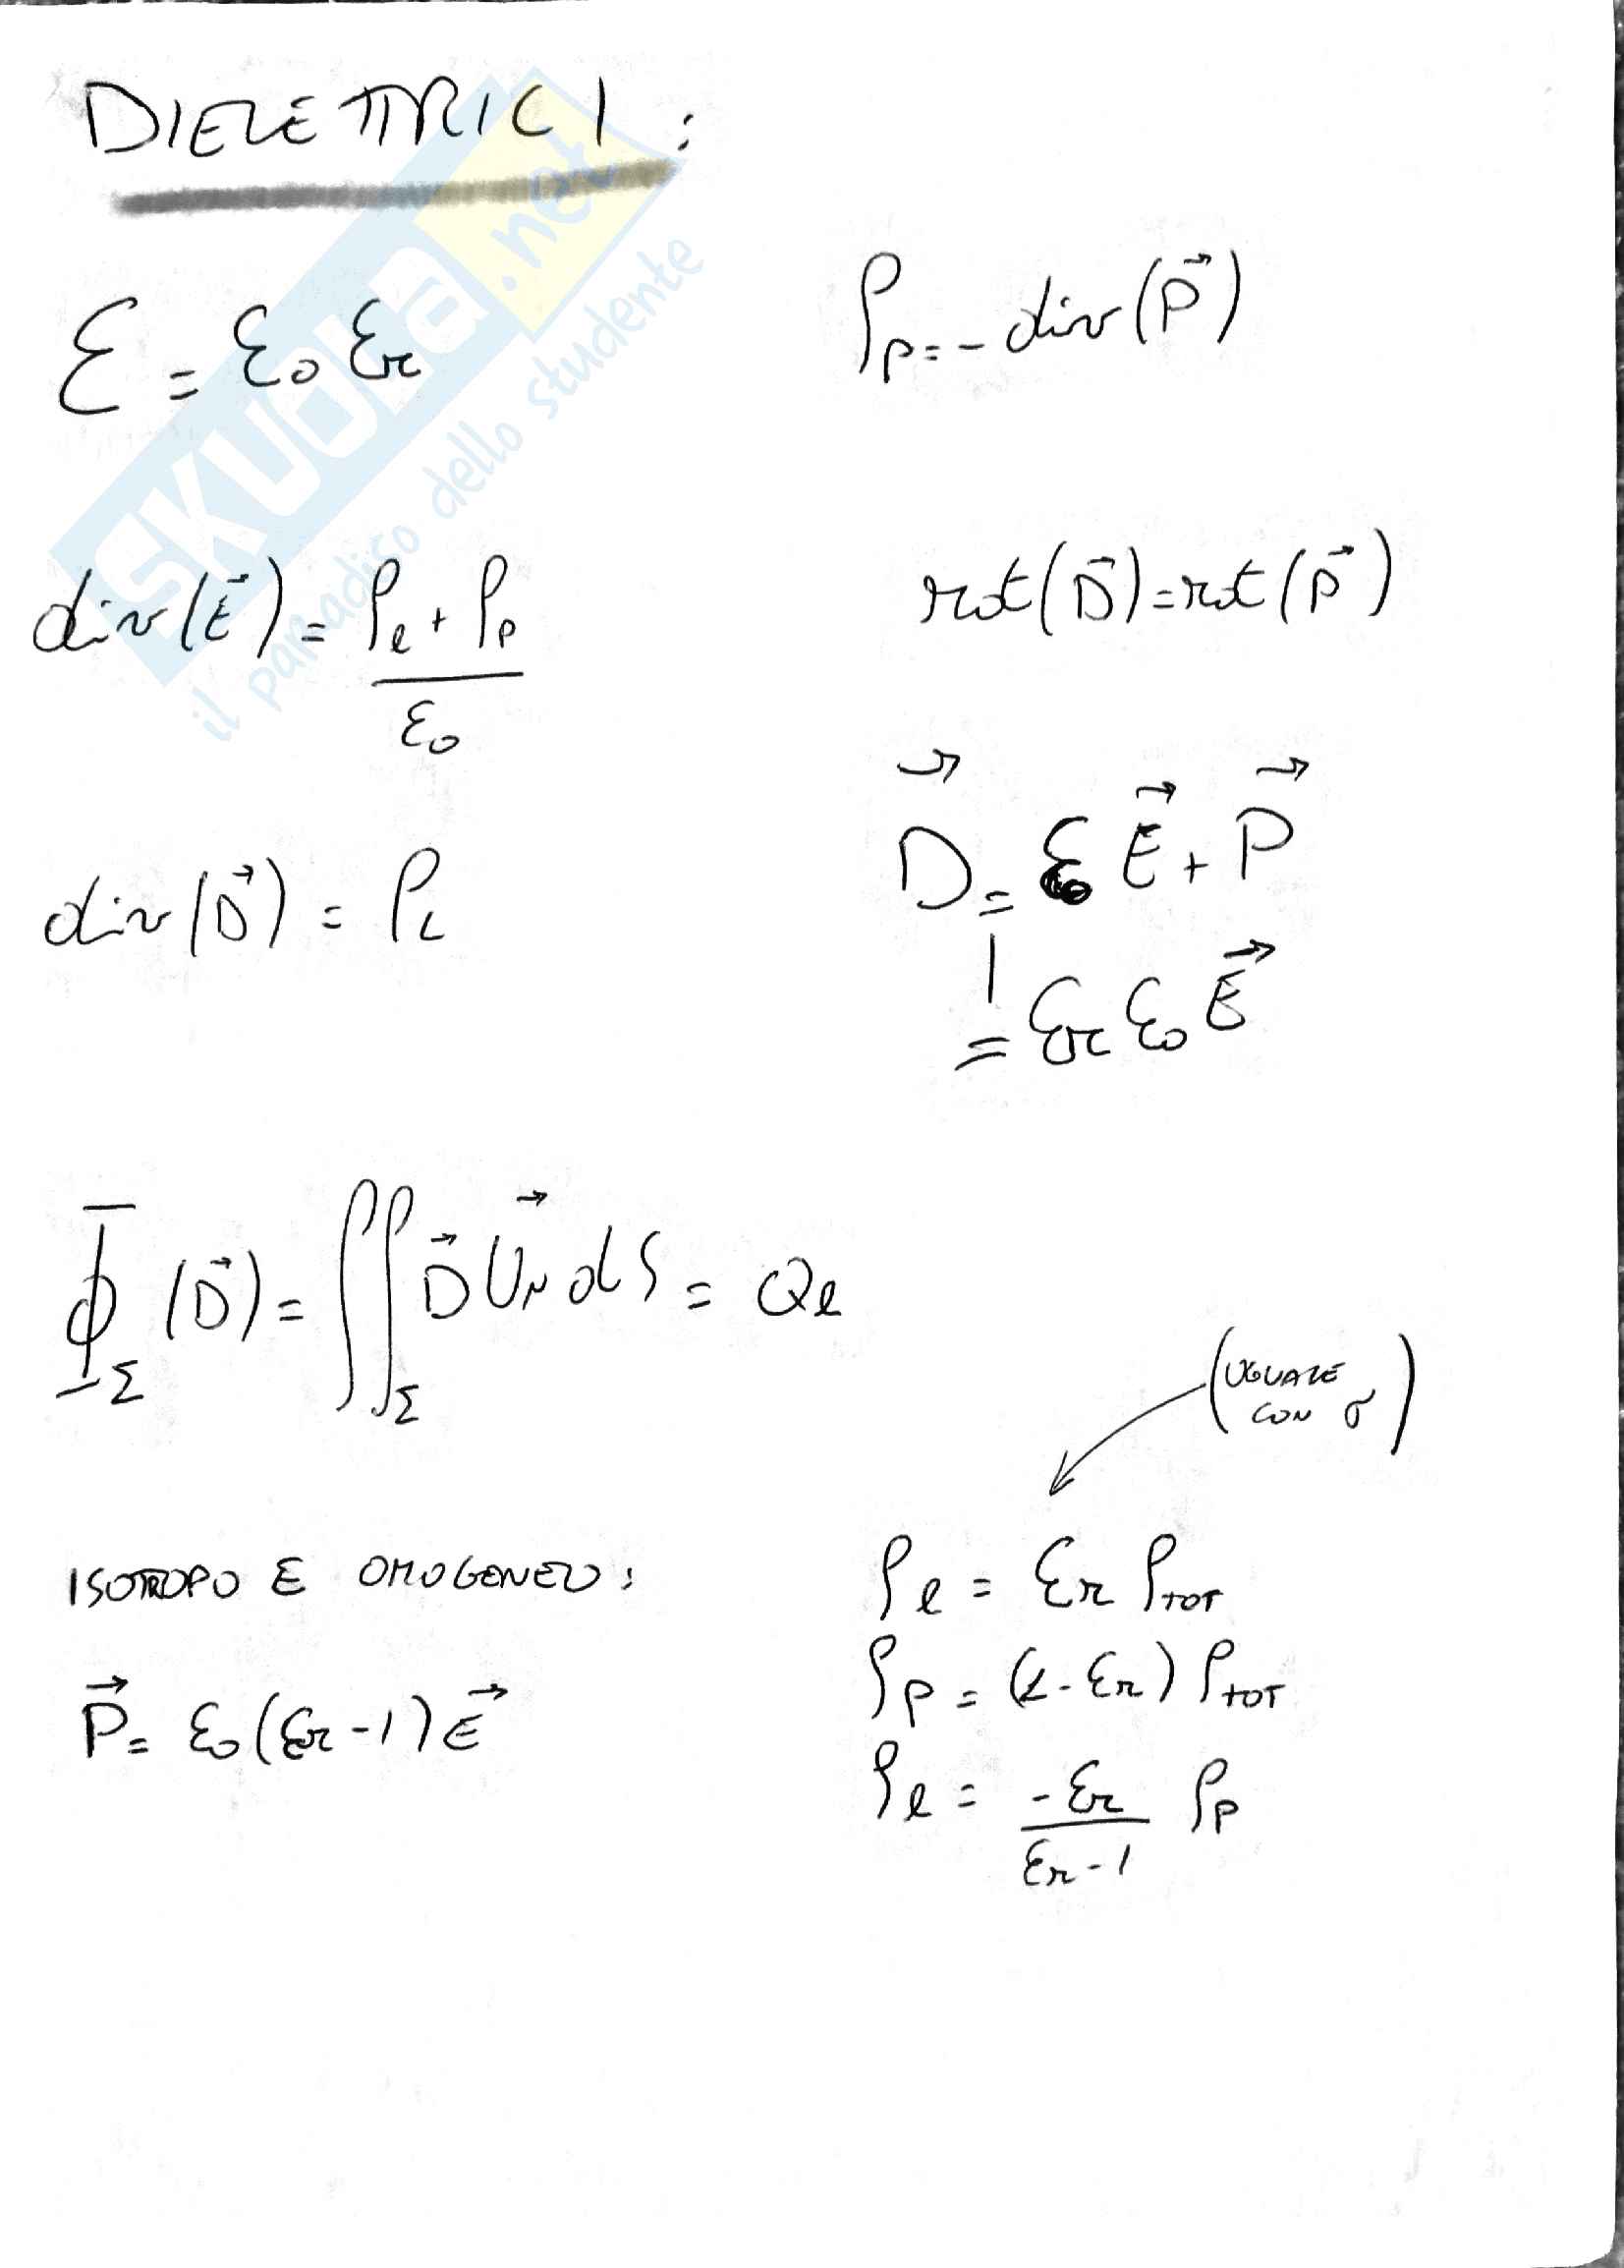 DIELETTRICI:
SKUOLA.net
il paradiso dello studente
ε = ε₀ εr
ρp = - div(P⃗)
div(E⃗) = (ρl + ρp) / ε₀
rot(D⃗) = rot(P⃗)
div(D⃗) = ρL
D⃗ = ε₀ E⃗ + P⃗
= εr ε₀ E⃗
Φ_Σ (D⃗) = ∬_Σ D⃗ U⃗N dS = Ql
(UGUALE
CON σ)
ISOTROPO E OMOGENEO:
P⃗ = ε₀(εr - 1) E⃗
ρl = εr ρTOT
ρp = (1 - εr) ρTOT
ρl = (-εr / (εr - 1)) ρp